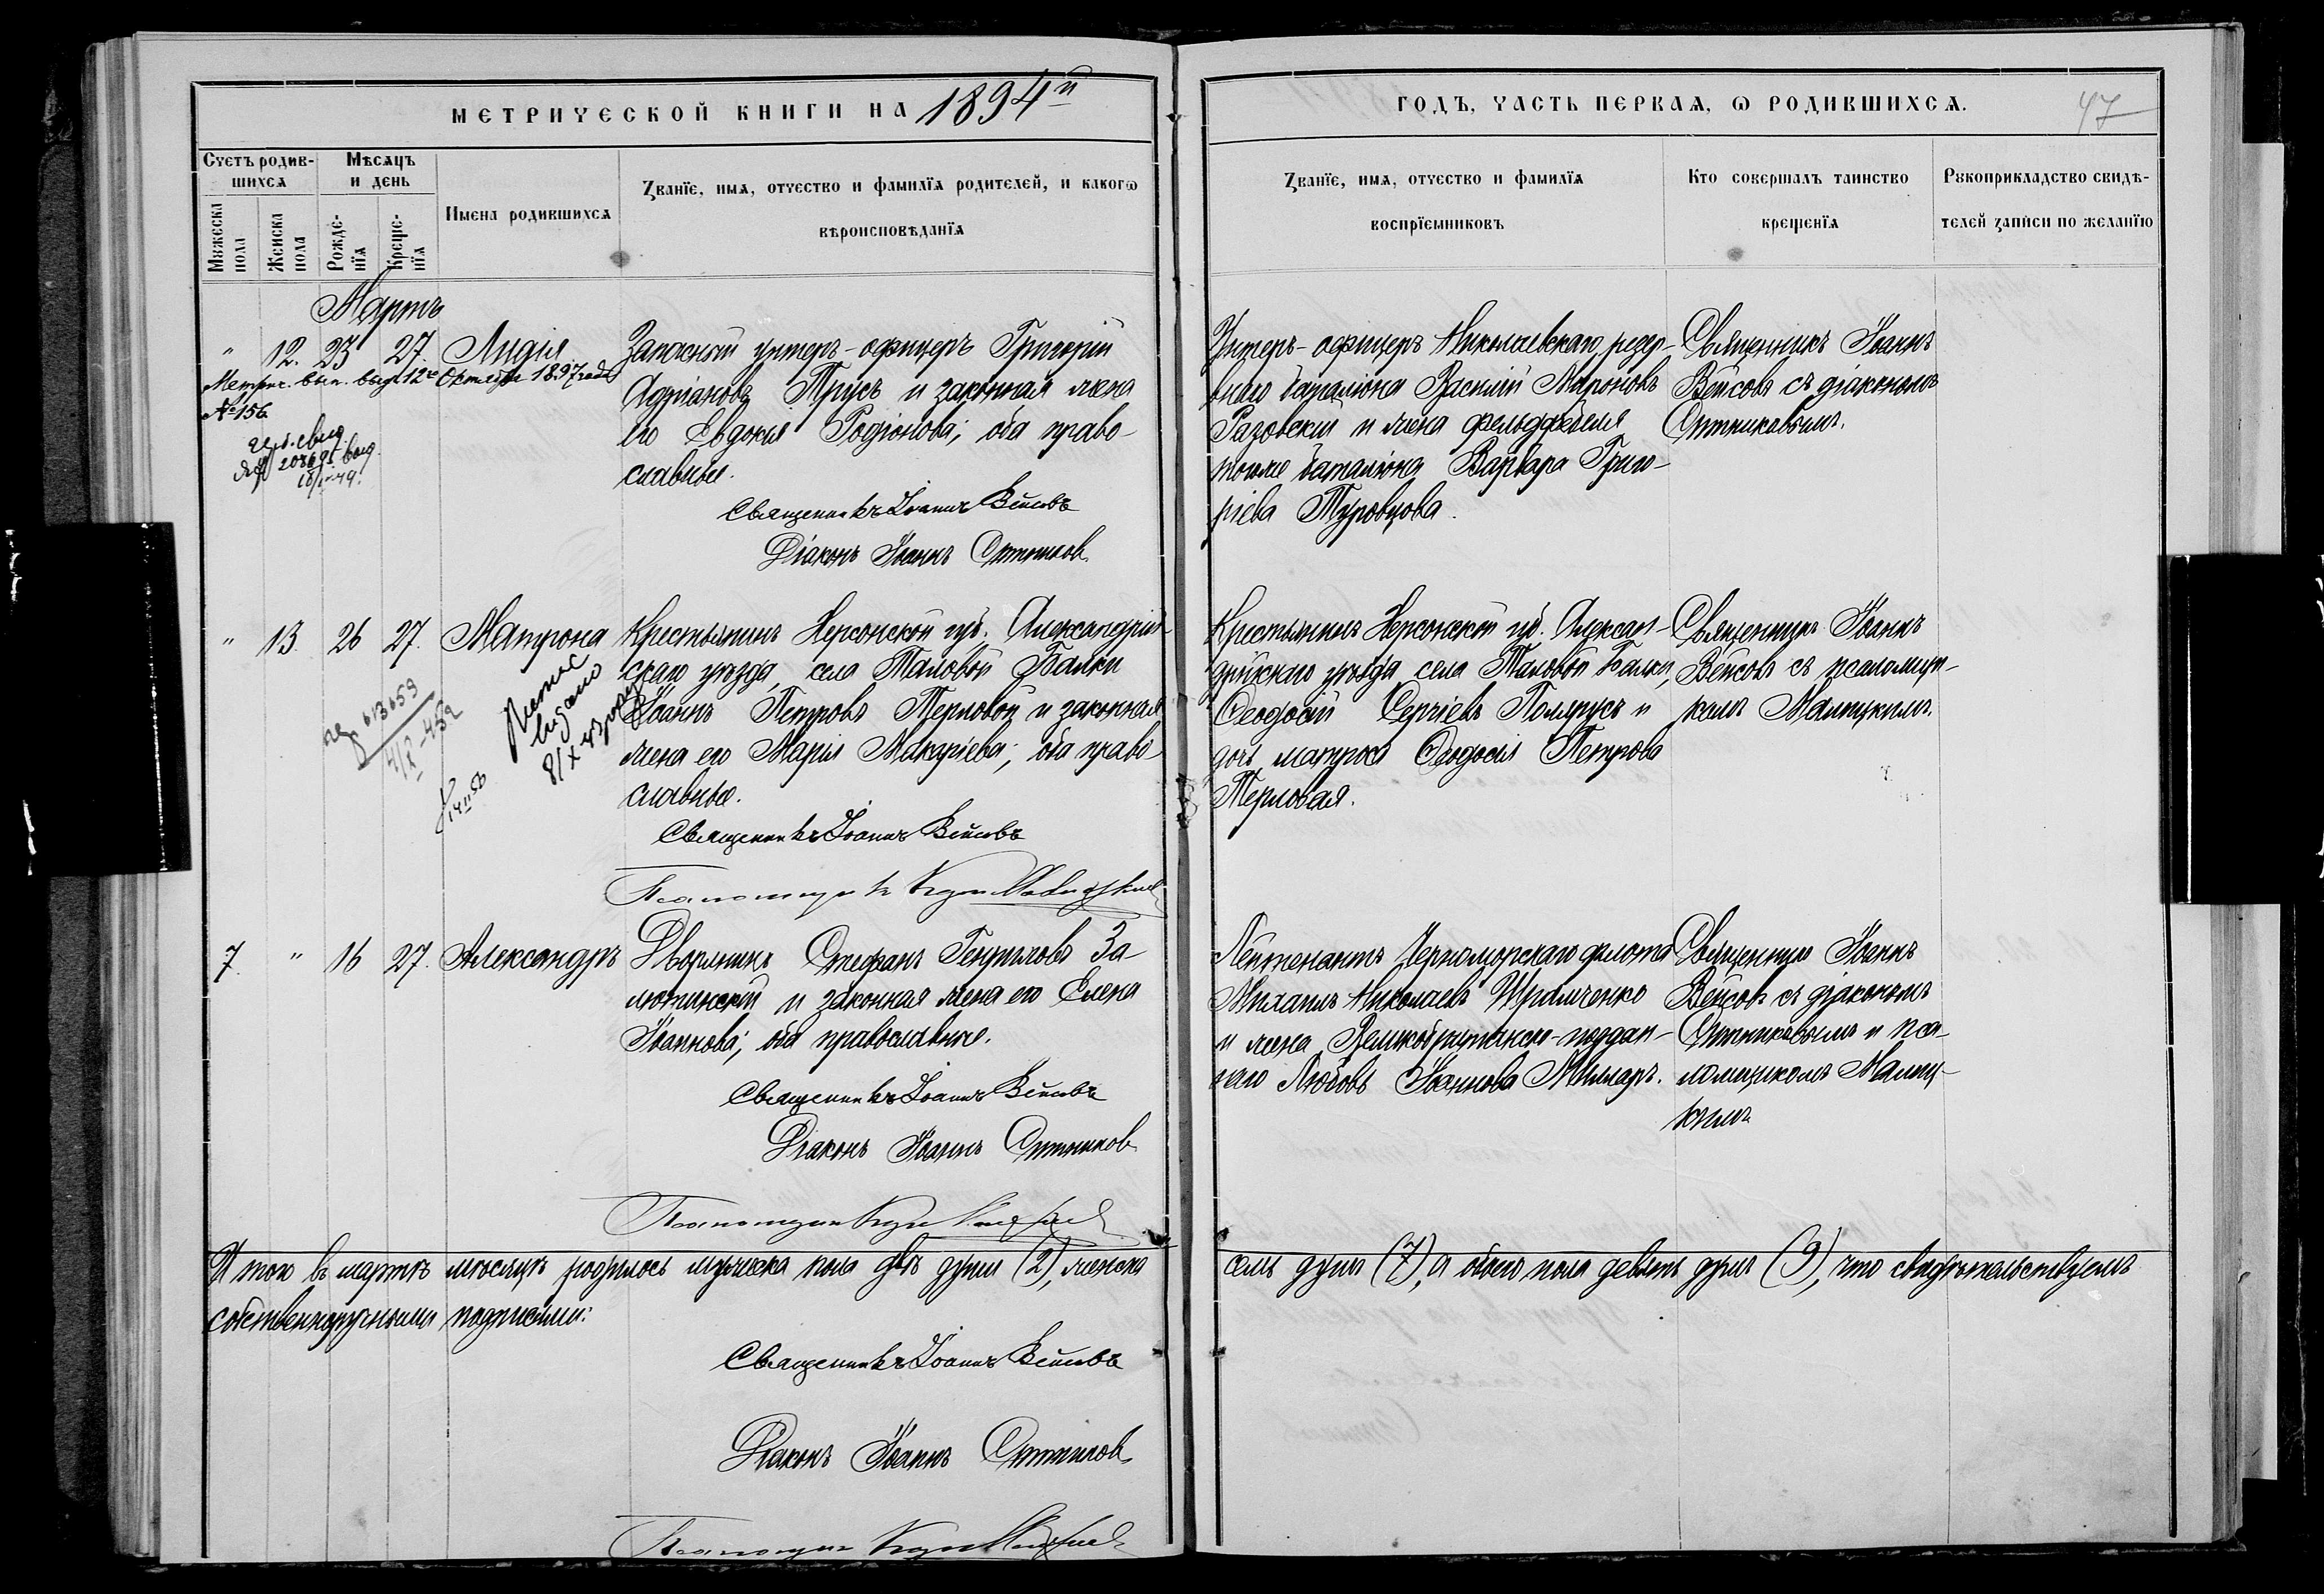 МЕТРИЧЕСКОЙ КНИГИ НА 1894й
ГОДЪ, ЧАСТЬ ПЕРВАѦ, Ѡ РОДИВШИХСѦ.
47
Счетъ родив-
шихсѧ
Мѣсѧцъ
и день
Мꙋжеска
пола
Женска
пола
Рожде-
нїѧ
Креще-
нїѧ
Имена родившихсѧ
Званїе, имѧ, отчество и фамилїѧ родителей, и какогѡ
вѣроисповѣданїѧ
Званїе, имѧ, отчество и фамилїѧ
воспрїемниковъ
Кто совершалъ таинство
крещенїѧ
Рꙋкоприкладство свидѣ-
телей записи по желанїю
Мартъ
" 12. 23 27. Лидія
Метрич. вып. выд. 12го Октября 1897 года
№ 156
Запасный унтеръ-офицеръ Григорій
Адріановъ Трусъ и законная жена
его Евдокія Родіонова; оба право-
славные.
Священникъ Іоаннъ Вейсовъ
Діаконъ Іоаннъ Ситников
Унтеръ-офицеръ Николаевскаго резер-
внаго баталіона Василій Мароновъ
Разовскій и жена фельдфебеля
тогоже баталіона Варвара Григо-
ріева Туровцова.
Священникъ Іоаннъ
Вейсовъ съ діакономъ
Ситниковымъ.
" 13. 26 27. Матрона
613659
видано
Крестьянинъ Херсонской губ. Александрій-
скаго уѣзда, села Таловой Балки
Іоаннъ Петровъ Терловой и законная
жена его Марія Макаріева; оба право-
славные.
Священникъ Іоаннъ Вейсовъ
Крестьянинъ Херсонской губ. Алексан-
дрійскаго уѣзда села Таловой Балки,
Ѳеодосій Сергіевъ Полярусъ и
дочь матроса Ѳеодосія Петрова
Терловая.
Священникъ Іоаннъ
Вейсовъ съ псаломщи-
комъ Малицкимъ.
7. " 16 27. Александръ
Дворянинъ Стефанъ Генриховъ За-
лютинскій и законная жена его Елена
Іоаннова; оба православные.
Священникъ Іоаннъ Вейсовъ
Діаконъ Іоаннъ Ситников
Лейтенантъ Черноморскаго флота
Михаилъ Николаевъ Шрамченко
и жена Великобританско-поддан-
наго Любовь Іоаннова Милларъ.
Священникъ Іоаннъ
Вейсовъ съ діакономъ
Ситниковымъ и пса-
ломщикомъ Малиц-
кимъ
Итого въ мартѣ мѣсяцѣ родилось мужеска пола двѣ души (2), женска
семь душъ (7), а обоего пола девять душъ (9), что свидѣтельствуемъ
собственноручными подписями:
Священникъ Іоаннъ Вейсовъ
Діаконъ Іоаннъ Ситников